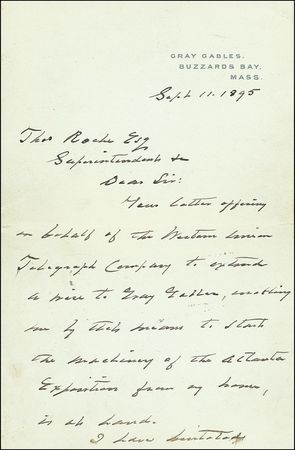 GRAY GABLES,
BUZZARDS BAY,
MASS.
Sept 11. 1895
Thos Roche Esq
Superintendent &c
Dear Sir:
Your letter offering
on behalf of the Western Union
Telegraph Company to extend
a wire to Gray Gables, enabling
me by that means to start
the machinery of the Atlanta
Exposition from my home,
is at hand.
I have hesitated